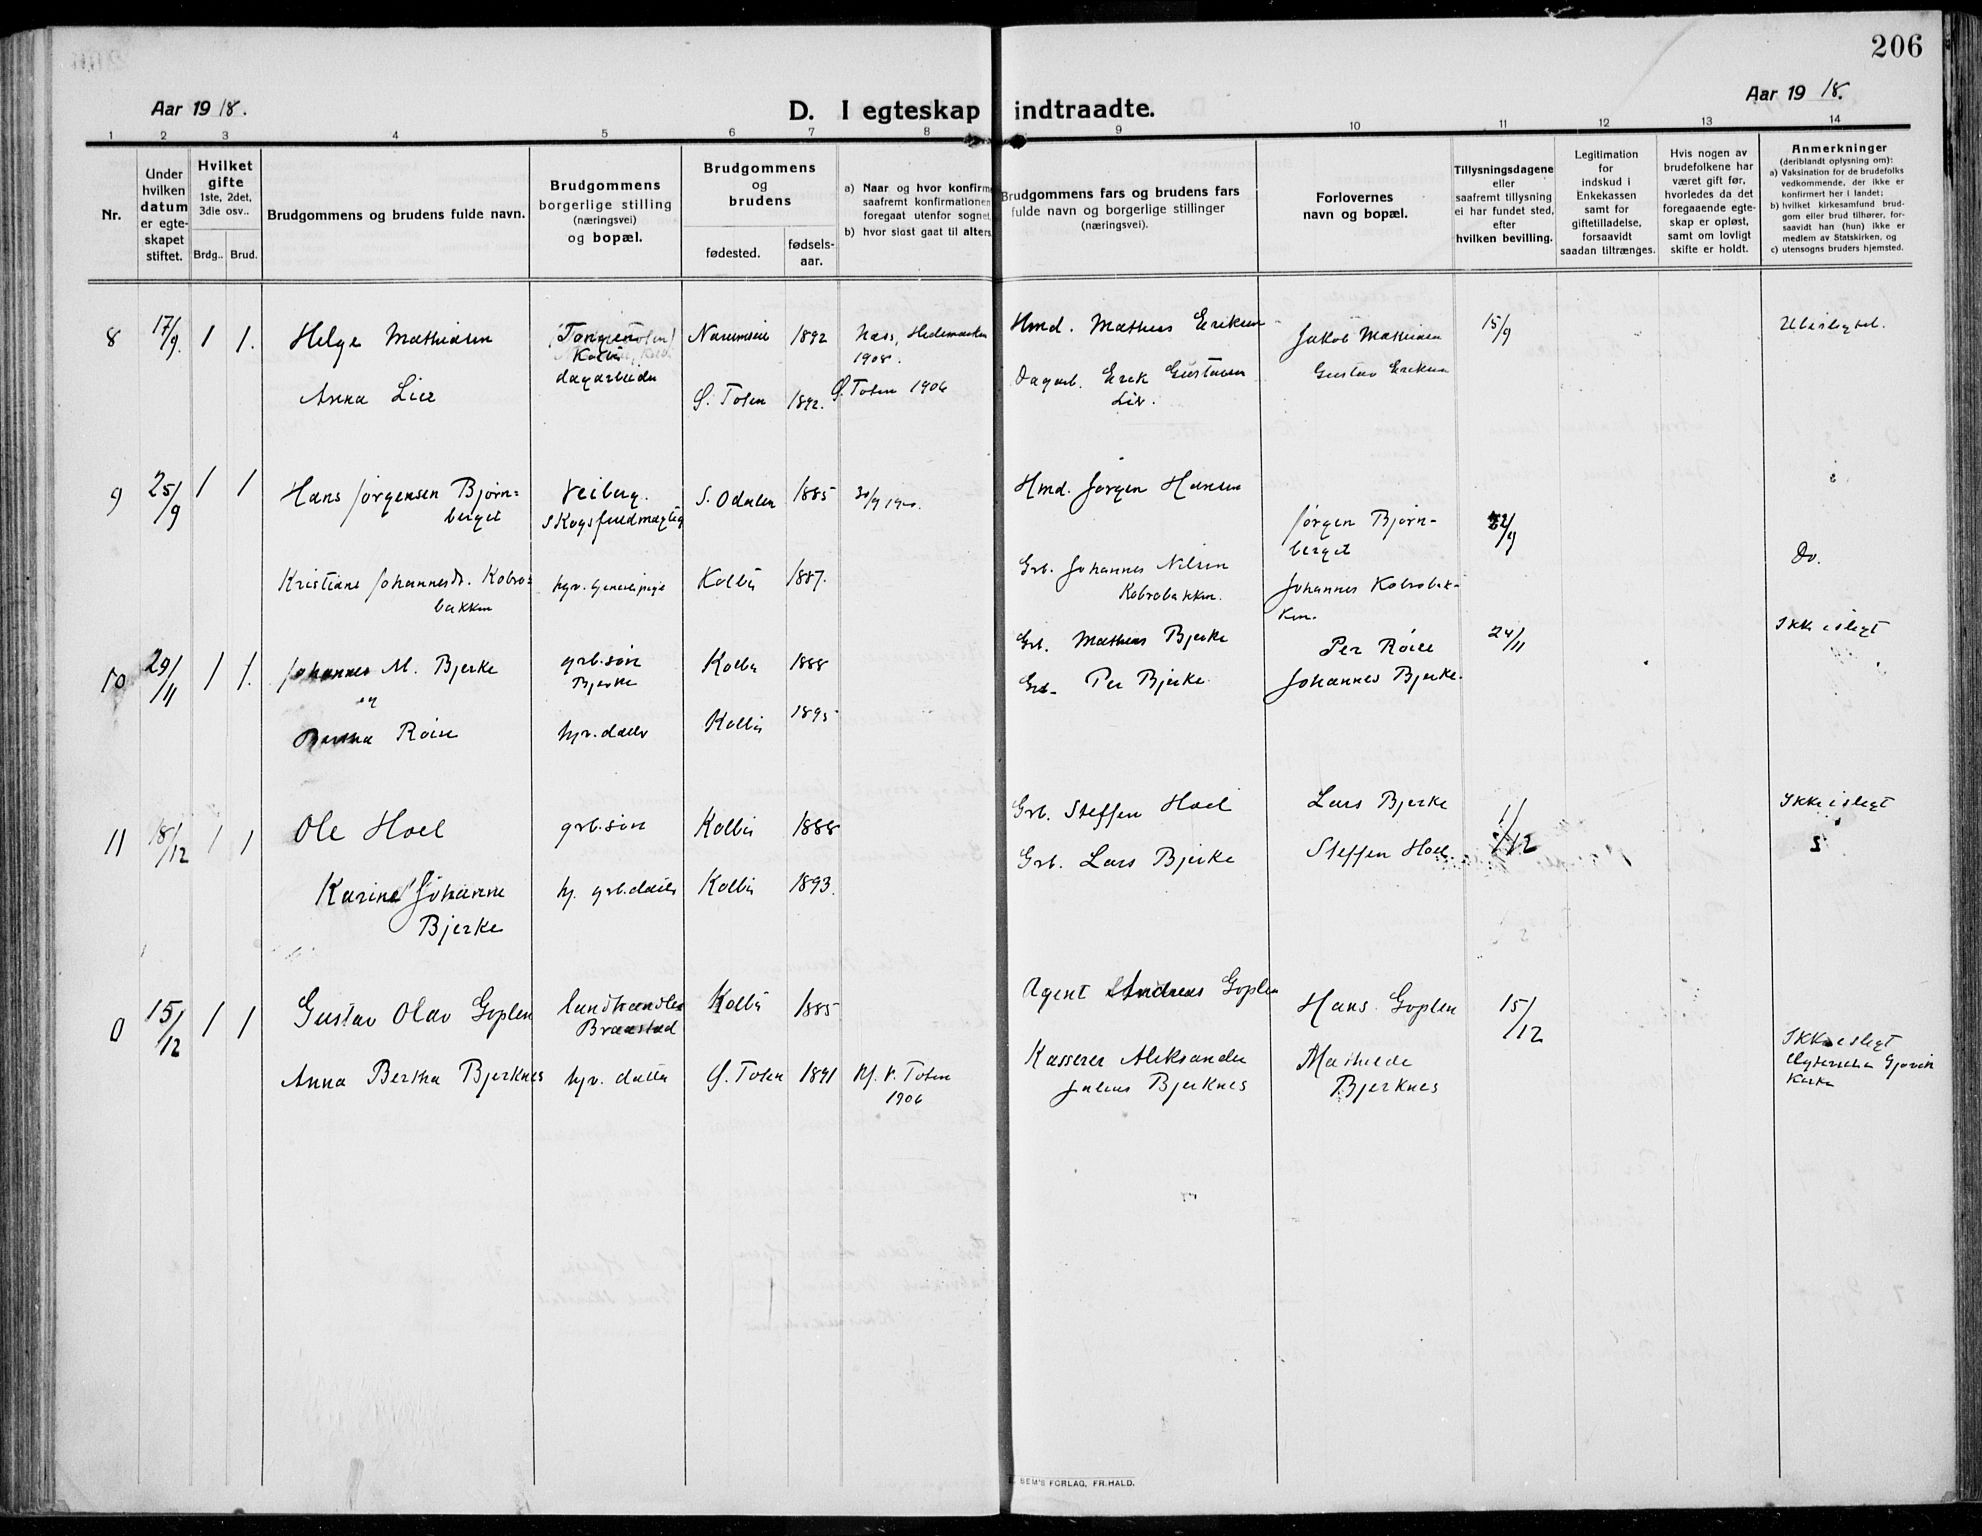 206
Aar 1918.
D. I egteskap indtraadte.
Aar 1918.
1 2 3 4 5 6 7 8 9 10 11 12 13 14
Nr.
Under hvilken datum er egteskapet stiftet.
Hvilket gifte 1ste, 2det, 3die osv..
Brdg.. Brud.
Brudgommens og brudens fulde navn.
Brudgommens borgerlige stilling (næringsvei) og bopæl.
Brudgommens og brudens
fødested. fødselsaar.
a) Naar og hvor konfirm
saafremt konfirmationen
foregaat utenfor sognet.
b) hvor sidst gaat til alters.
Brudgommens fars og brudens fars
fulde navn og borgerlige stillinger
(næringsvei).
Forlovernes
navn og bopæl.
Tillysningsdagene
eller
saafremt tillysning
ei har fundet sted,
efter
hvilken bevilling.
Legitimation
for
indskud i
Enkekassen
samt for
giftetilladelse,
forsaavidt
saadan tiltrænges.
Hvis nogen av
brudefolkene har
været gift før,
hvorledes da det
foregaaende egte-
skap er opløst,
samt om lovligt
skifte er holdt.
Anmerkninger
(deriblandt oplysning om):
a) Vaksination for de brudefolks
vedkommende, der ikke er
konfirmert her i landet;
b) hvilket kirkesamfund brud-
gom eller brud tilhører, for-
saavidt han (hun) ikke er
medlem av Statskirken, og
c) utensogns bruders hjemsted.
8 17/9. 1 1. Helge Mathiasen
Kolbu
dagarbeider
1892 Næs, Hedemarken
1908.
Hmd. Mathias Eriksen
Jakob Mathiasen
15/9
Anna Lier Ø. Toten 1892. Ø. Toten 1906
Dagarb. Erik Gustavsen
Lier.
Gustav Eriksen
9 25/9 1 1 Hans Jørgensen Bjørn=
berget
Veiberg.
Skogsfuldmægtig
S. Odalen 1885
Hmd. Jørgen Hansen
Jørgen Bjørn-
berget
22/9
Kristiane Johannesdr. Kobro=
bakken
Kolbu 1887.
Grb. Johannes Nilsen
Kobrobakken.
Johannes Kobrobak-
ken.
Do.
10 29/11 1 1. Johannes M. Bjerke
og
grb.søn
Bjerke
Kolbu 1888
Grb. Mathias Bjerke
Per Røise
24/11
Ikke i slegt
Bertha Røise hjv. datter Kolbu 1895
Grb. Per Bjerke
Johannes Bjerke.
11 18/12 1 1 Ole Hoel grb.søn Kolbu 1888
Grb. Steffen Hoel Lars Bjerke 1/12
Ikke i slegt
Karine Johanne
Bjerke
hj. grb.datter Kolbu 1893.
Grb. Lars Bjerke Steffen Hoel.
S
0 15/12 1 1 Gustav Olav Goplen
landhandler
Braastad
Kolbu 1885
Agent Andreas Goplen Hans Goplen 15/12
Anna Bertha Bjerknes hjv. datter Ø. Toten 1891 Kf. V. Toten
1906
Kasserer Aleksander
Julius Bjerknes
Mathilde
Bjerknes
Ikke i slegt
Gjøvik
Kirke
SEM'S FORLAG, FR.HALD.